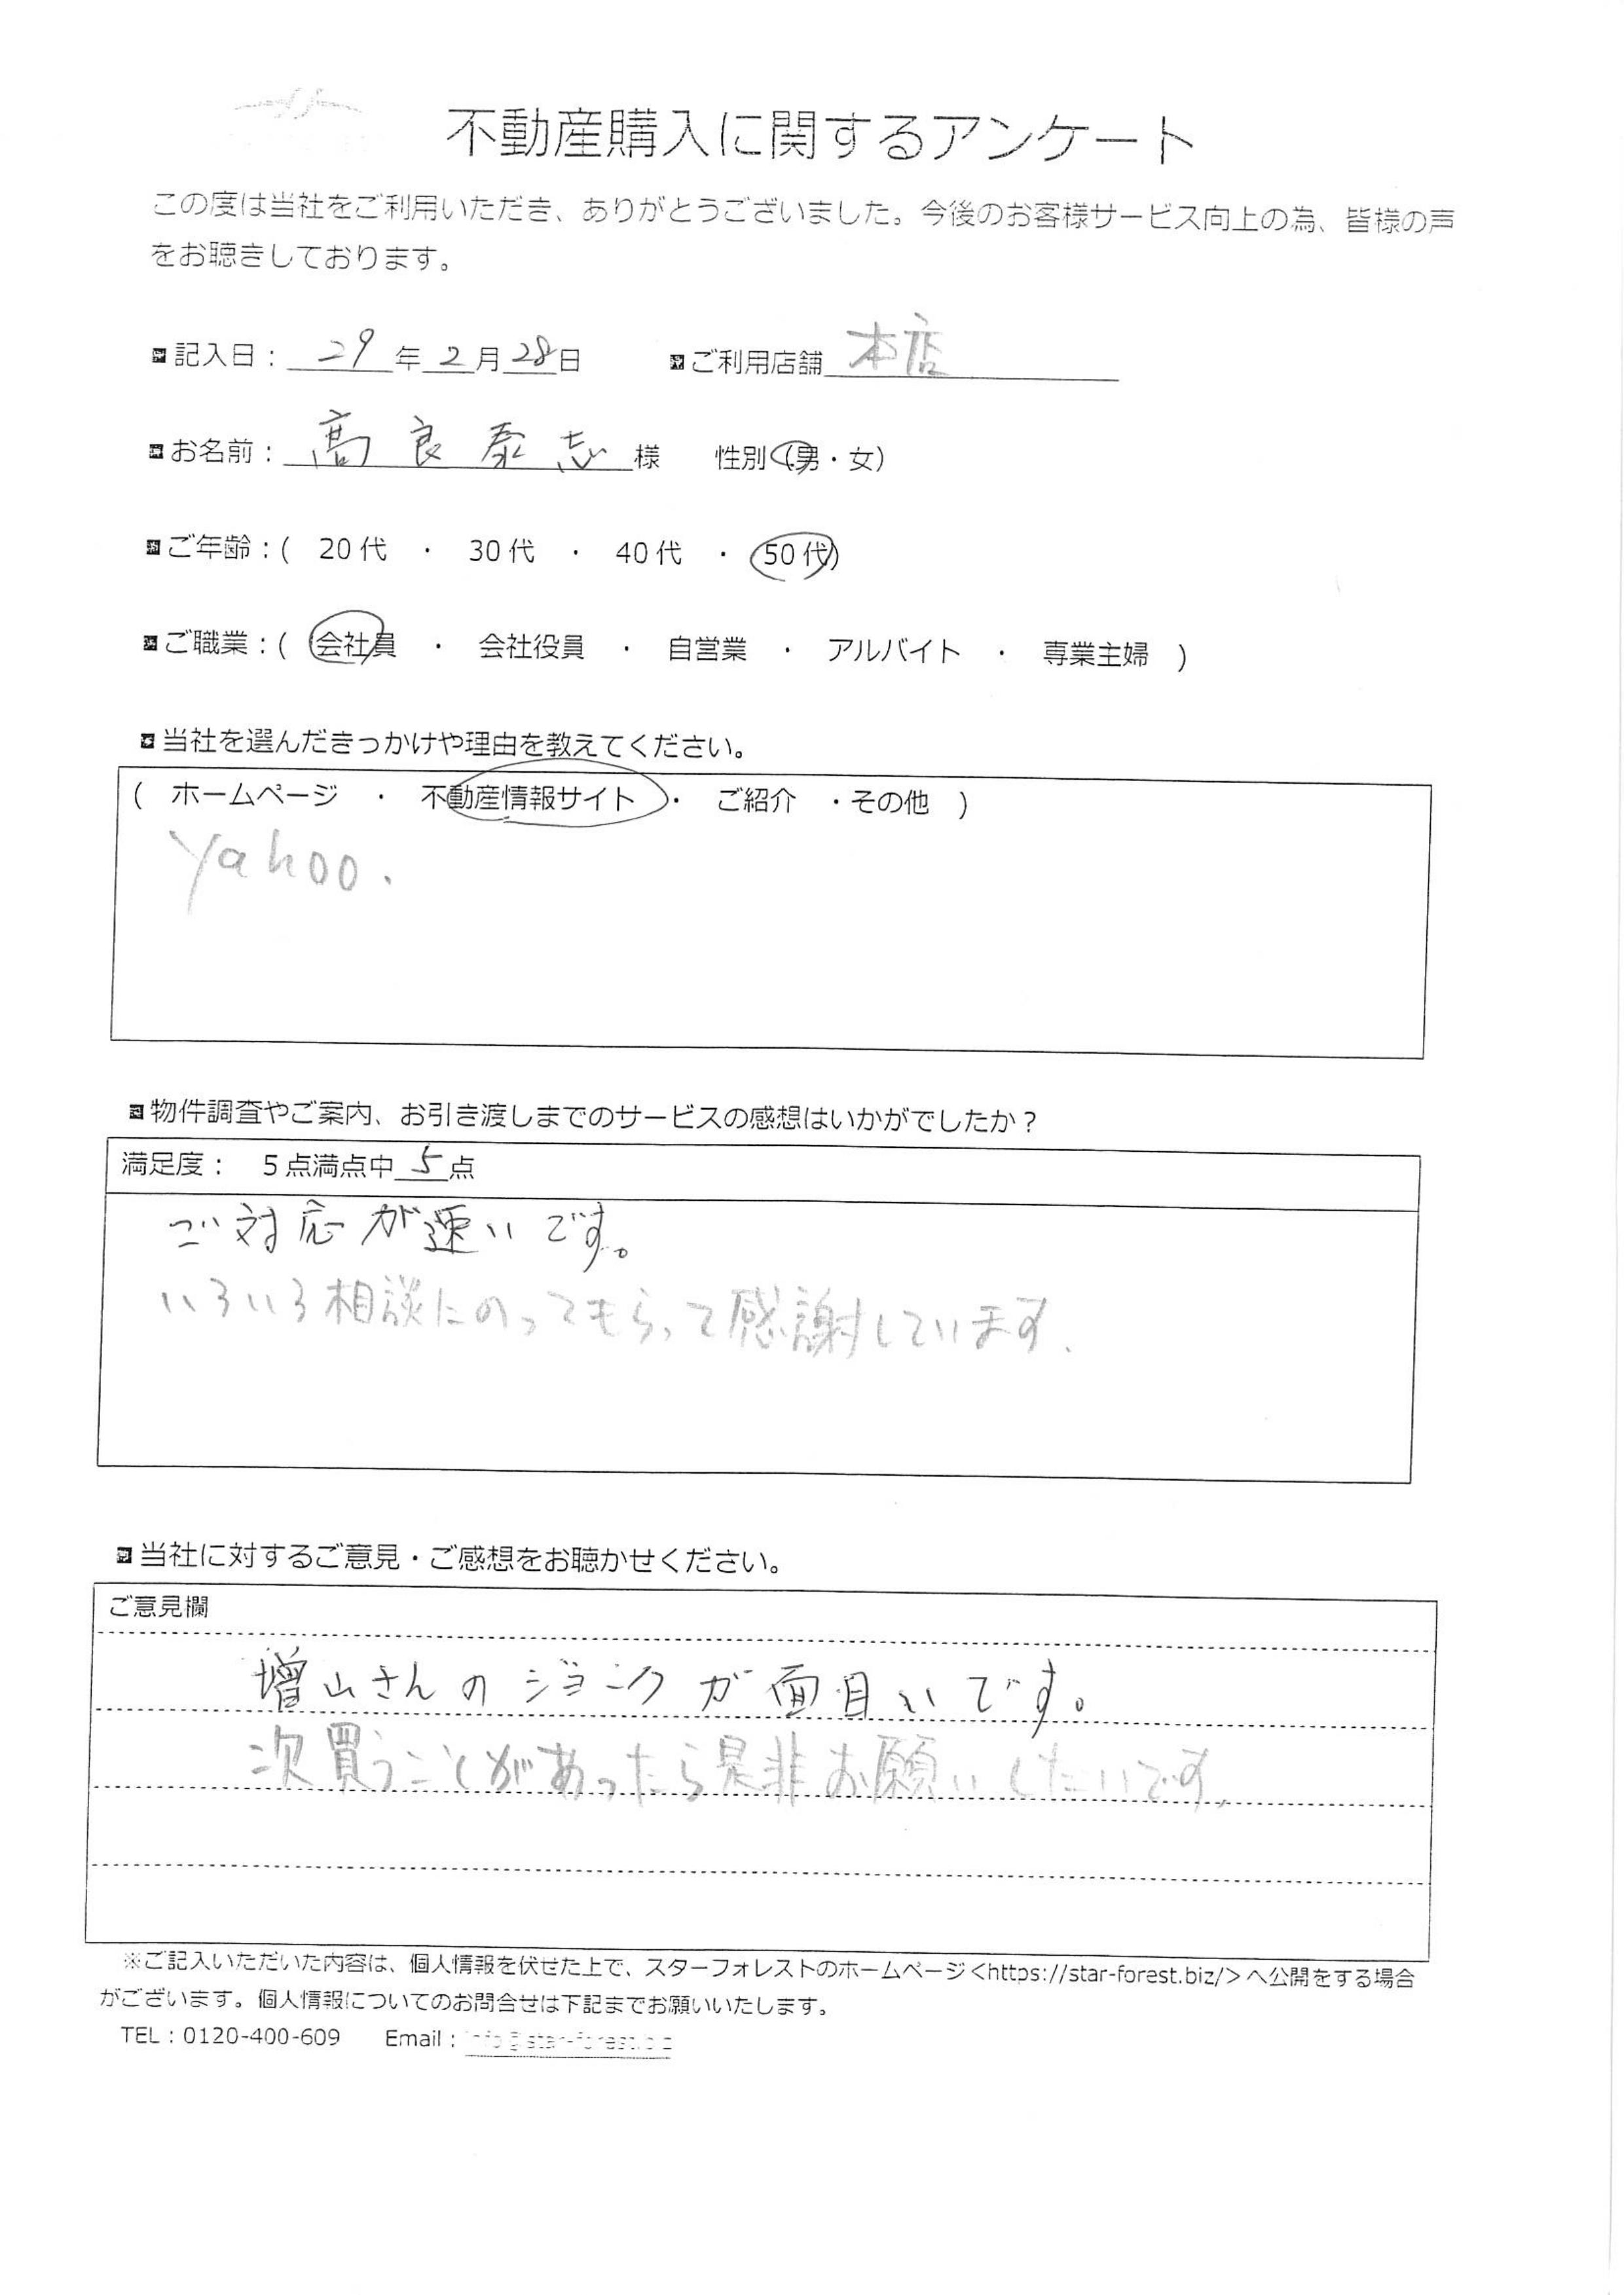 不動産購入に関するアンケート
この度は当社をご利用いただき、ありがとうございました。今後のお客様サービス向上の為、皆様の声
をお聴きしております。
記入日：29年2月28日　ご利用店舗 本店
お名前：高良泰志様　性別(男・女)
ご年齢：( 20代 ・ 30代 ・ 40代 ・ 50代)
ご職業：( 会社員 ・ 会社役員 ・ 自営業 ・ アルバイト ・ 専業主婦 )
当社を選んだきっかけや理由を教えてください。
( ホームページ ・ 不動産情報サイト ・ ご紹介 ・その他 )
Yahoo.
物件調査やご案内、お引き渡しまでのサービスの感想はいかがでしたか？
満足度： 5点満点中 5 点
ご対応が速いです。
いろいろ相談にのってもらって感謝しています.
当社に対するご意見・ご感想をお聴かせください。
ご意見欄
増山さんのジョークが面白いです。
次買うことがあったら是非お願いしたいです.
※ご記入いただいた内容は、個人情報を伏せた上で、スターフォレストのホームページ<https://star-forest.biz/>へ公開をする場合
がございます。個人情報についてのお問合せは下記までお願いいたします。
TEL：0120-400-609　Email：info@star-forest.biz